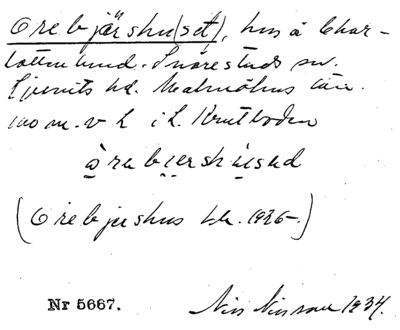 Orebjärshu(set), hus å Char-
lottenlund. Snårestads sn.
Ljunits hd. Malmöhus län.
100 m. v L i L. Krutboden
årabjærshused
(Orebjershus hk. 1926-.)
Nr 5667. Nils Nilsson 1934.